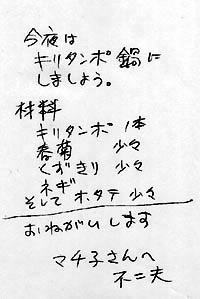 今夜は
キリタンポ鍋に
しましょう。
材料
キリタンポ 1本
春菊 少々
くずきり 少々
ネギ
そして ホタテ 少々
おねがいします
マチ子さんへ
不二夫